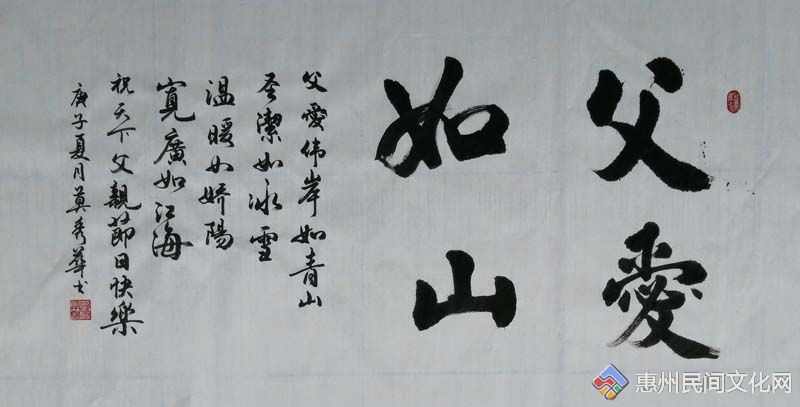 父愛
如山
父愛伟岸如青山
圣潔如冰雪
溫暖如娇陽
寬廣如江海
祝天下父親節日快樂
庚子夏月莫秀華书
惠州民间文化网